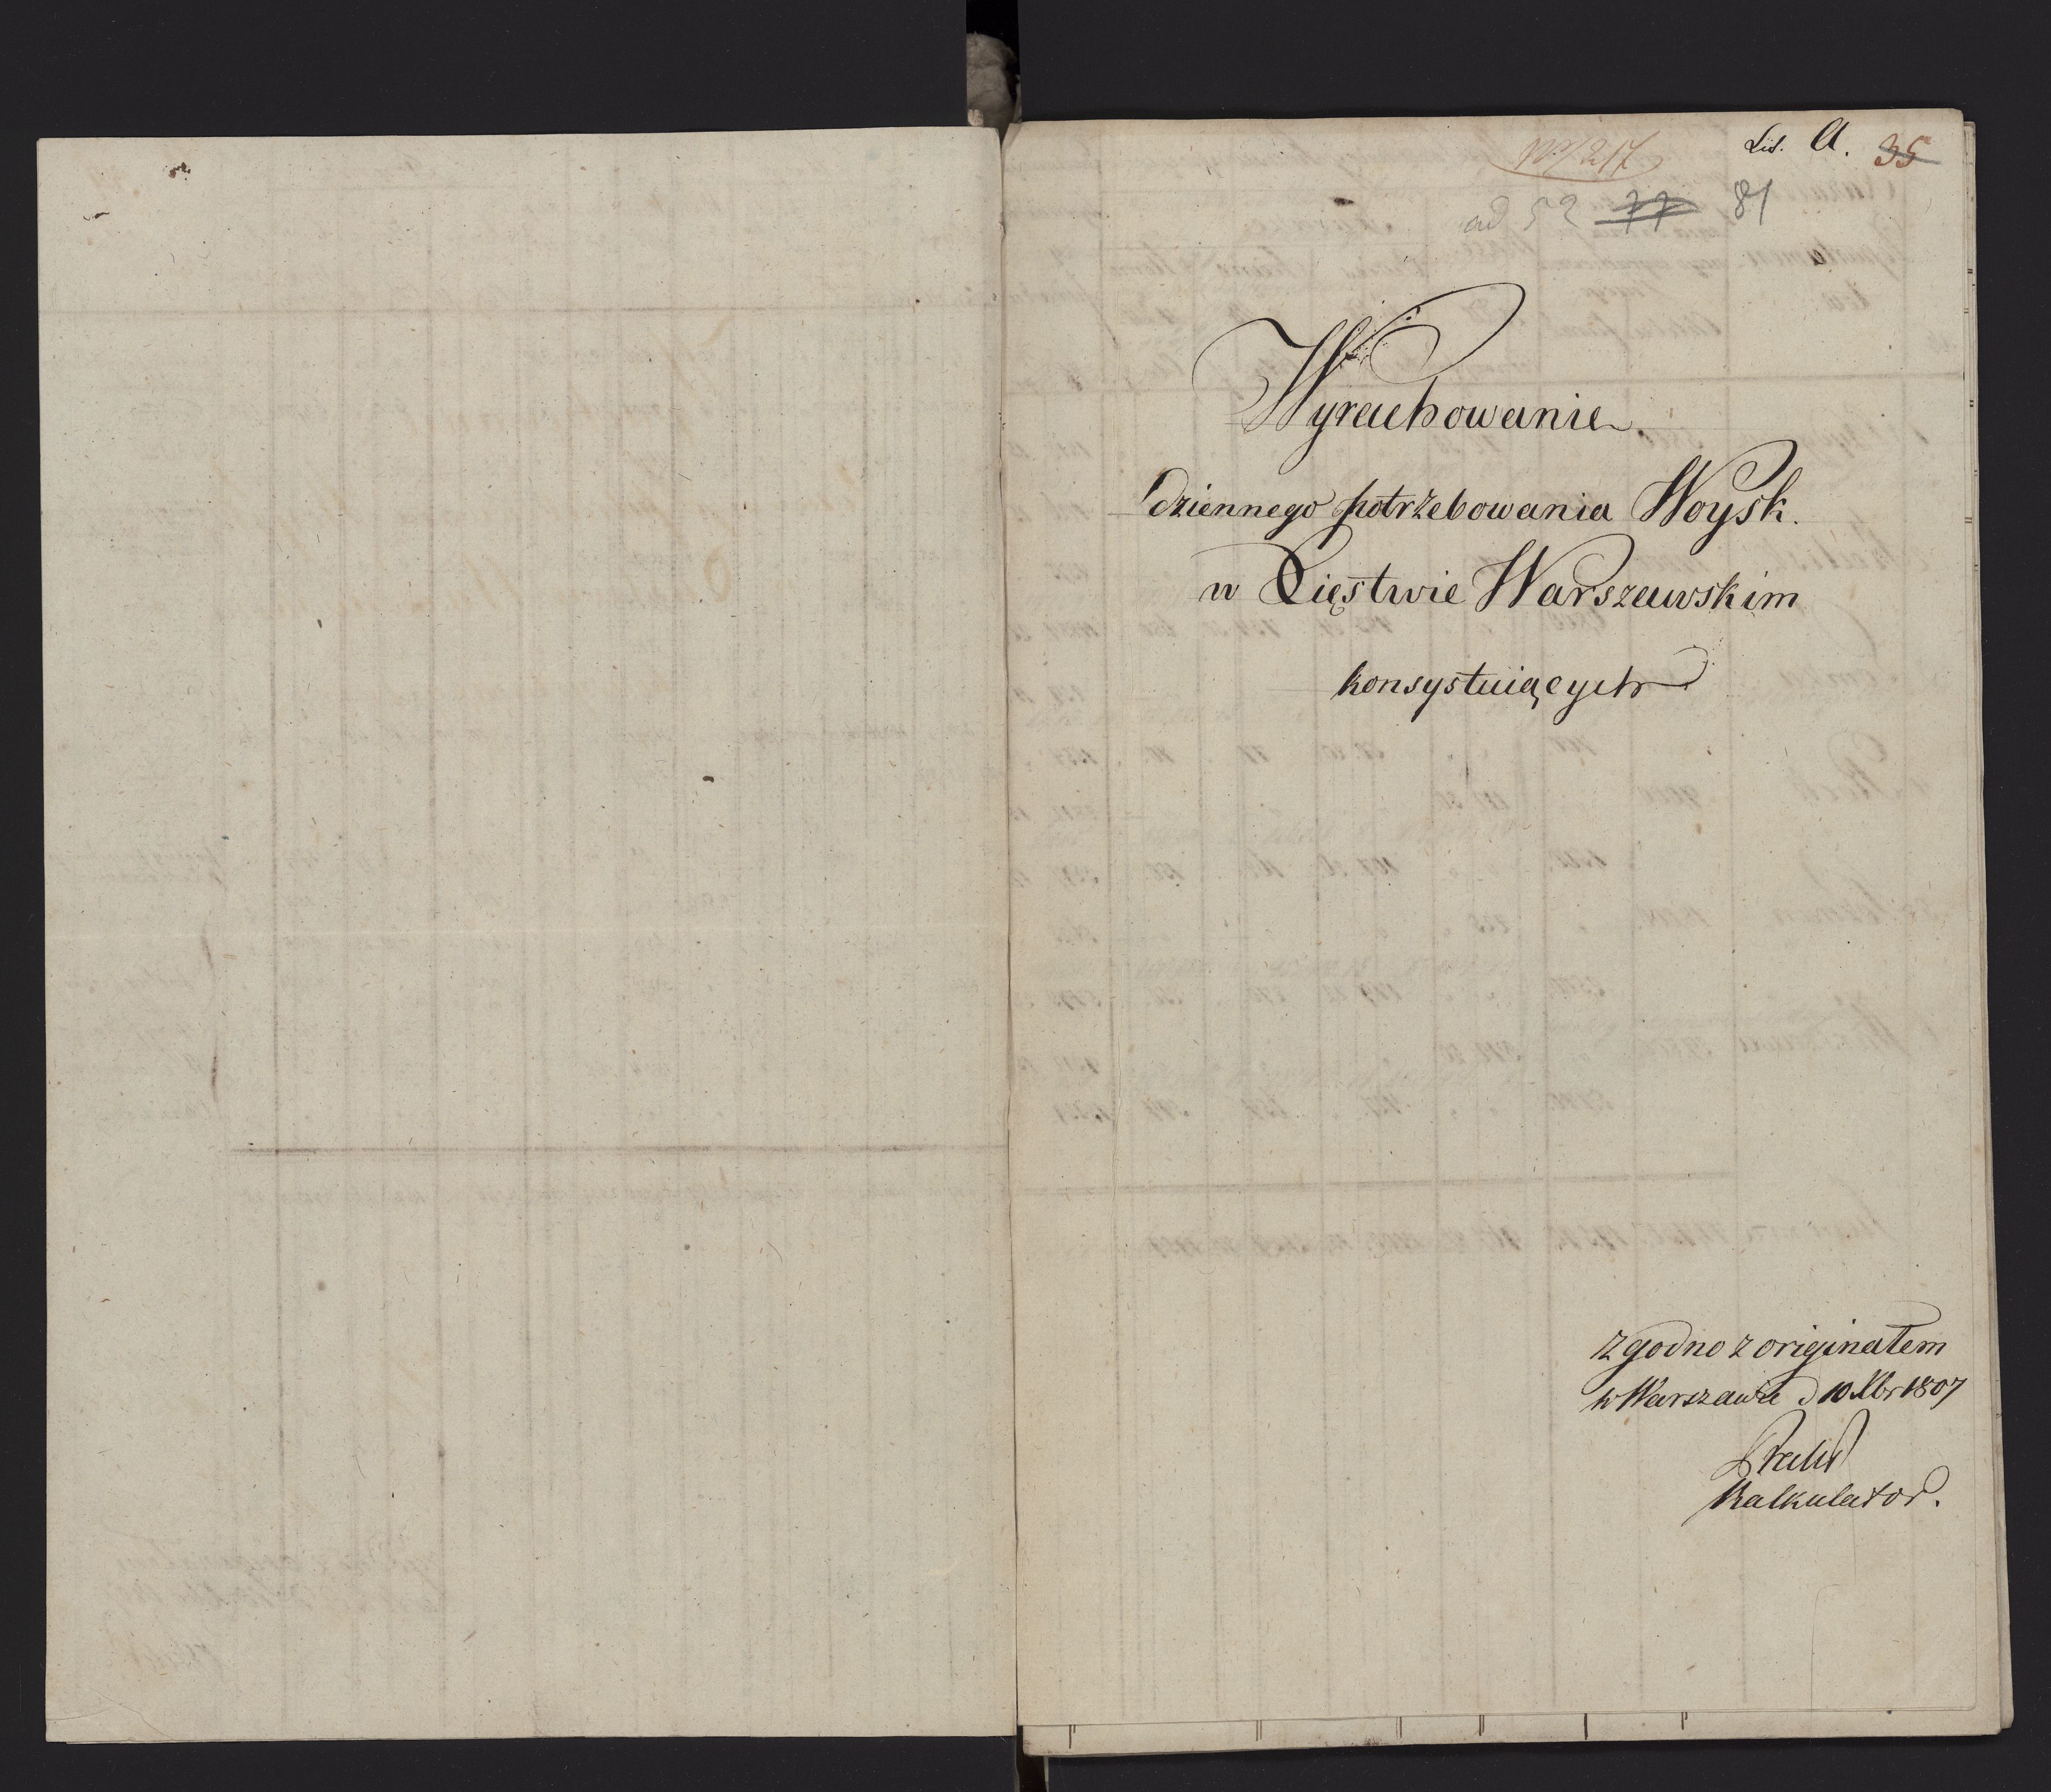 Lit. A. 35
No 217
ad 52 77 81
Wyrachowanie
dziennego potrzebowania Woysk
w Xięstwie Warszawskim
konsystuiących
Zgodno z originałem
w Warszawie d 10 Xbr 1807
Kalkulator.